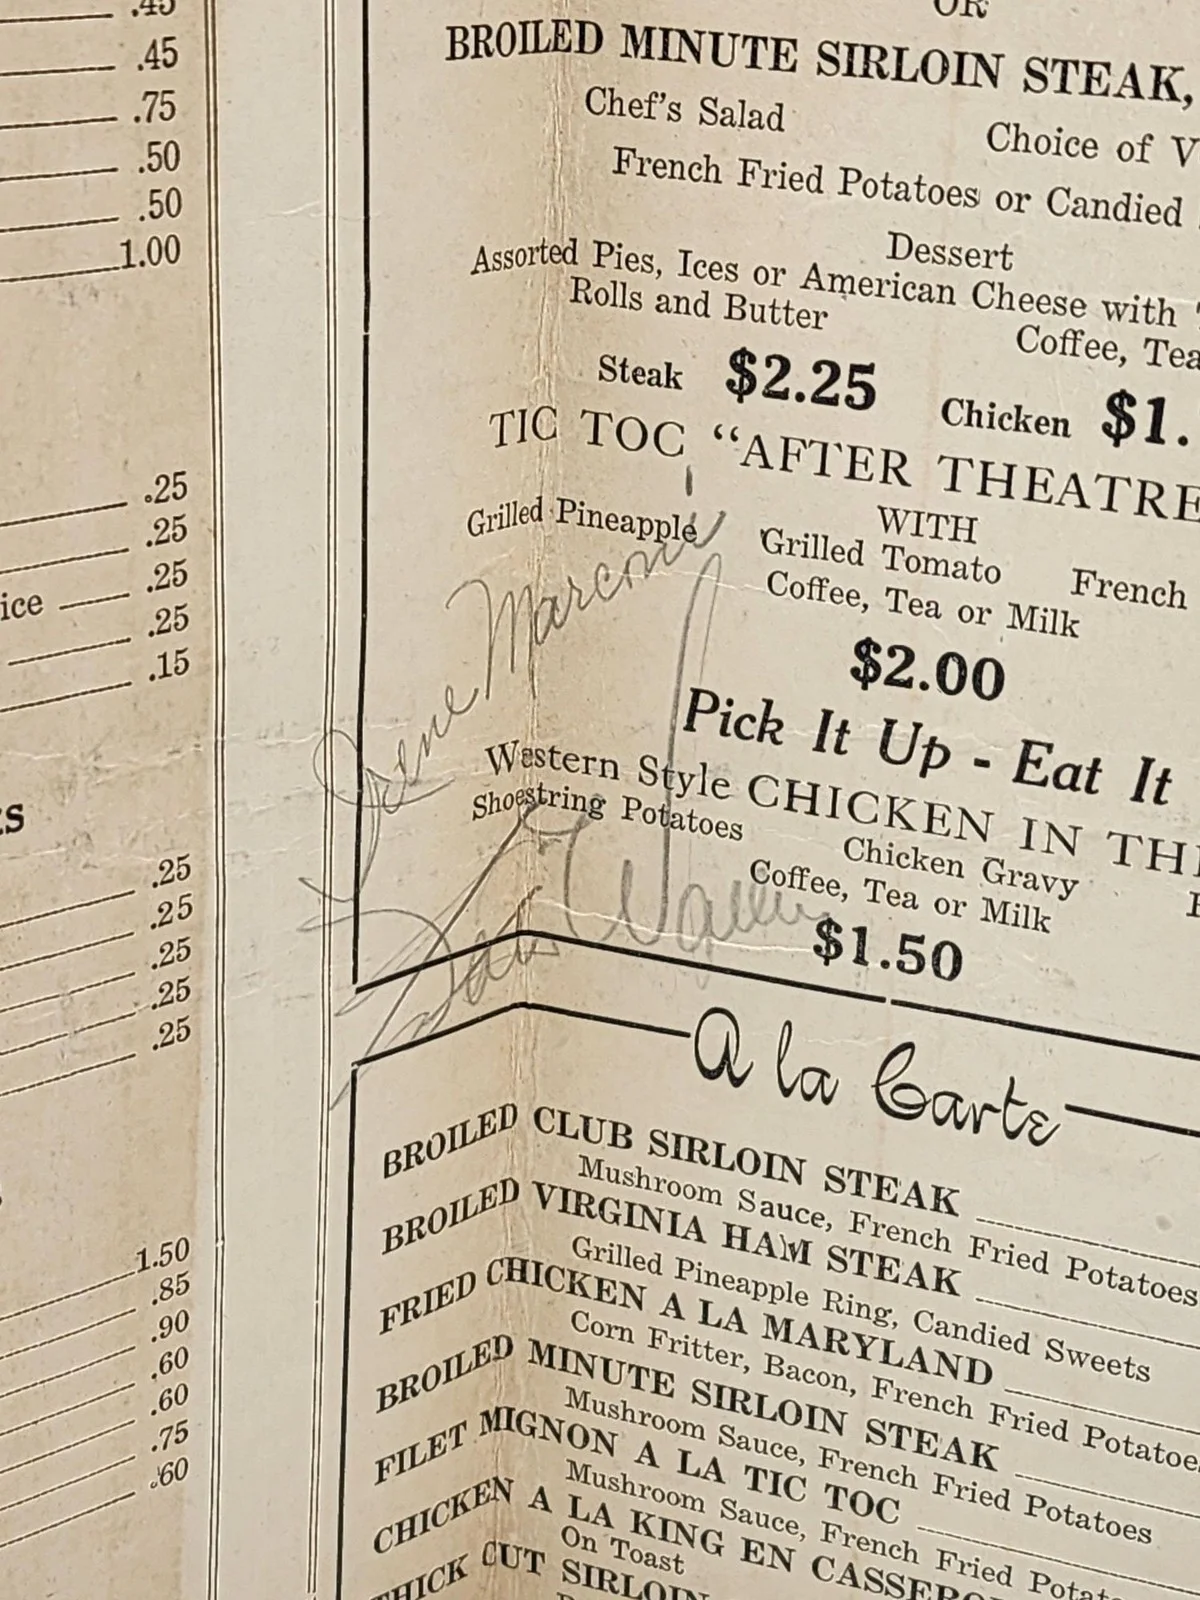 .45
.45
.75
.50
.50
1.00
.25
.25
ice .25
.25
.15
.25
.25
.25
.25
.25
1.50
.85
.90
.60
.60
.75
.60
OR
BROILED MINUTE SIRLOIN STEAK,
Chef's Salad Choice of V
French Fried Potatoes or Candied
Dessert
Assorted Pies, Ices or American Cheese with
Rolls and Butter Coffee, Tea
Steak $2.25 Chicken $1.
TIC TOC "AFTER THEATRE
WITH
Grilled Pineapple Grilled Tomato French
Coffee, Tea or Milk
$2.00
Irene Marconi
Pick It Up - Eat It
Western Style CHICKEN IN TH
Shoestring Potatoes Chicken Gravy
Coffee, Tea or Milk
$1.50
A la Carte
BROILED CLUB SIRLOIN STEAK
Mushroom Sauce, French Fried Potatoes
BROILED VIRGINIA HAM STEAK
Grilled Pineapple Ring, Candied Sweets
FRIED CHICKEN A LA MARYLAND
Corn Fritter, Bacon, French Fried Potatoes
BROILED MINUTE SIRLOIN STEAK
Mushroom Sauce, French Fried Potatoes
FILET MIGNON A LA TIC TOC
Mushroom Sauce, French Fried Potat
CHICKEN A LA KING EN CASSERO
On Toast
THICK CUT SIRLOIN